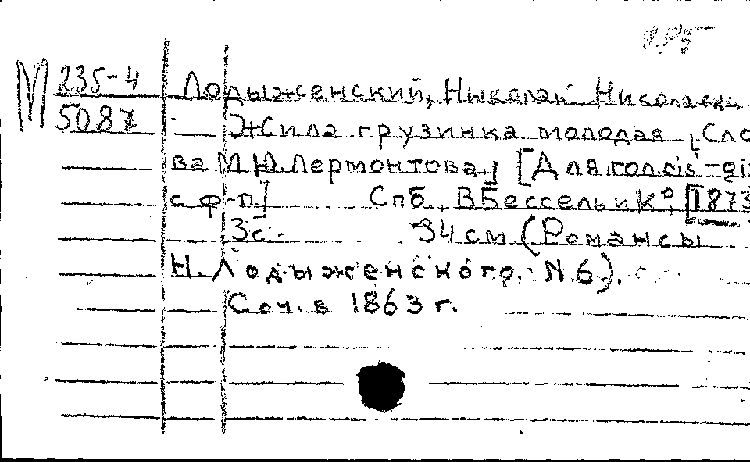 М 235-4 Лодыженский, Николай Николаеви
5087 Жила грузинка молодая [Сло
ва М.Ю.Лермонтова.] [Для голоса gis
с ф-п] Спб, В Бессель и К°, [1873
3с. 34см (Романсы
Н. Лодыженского. N 6).
Соч. в 1863 г.